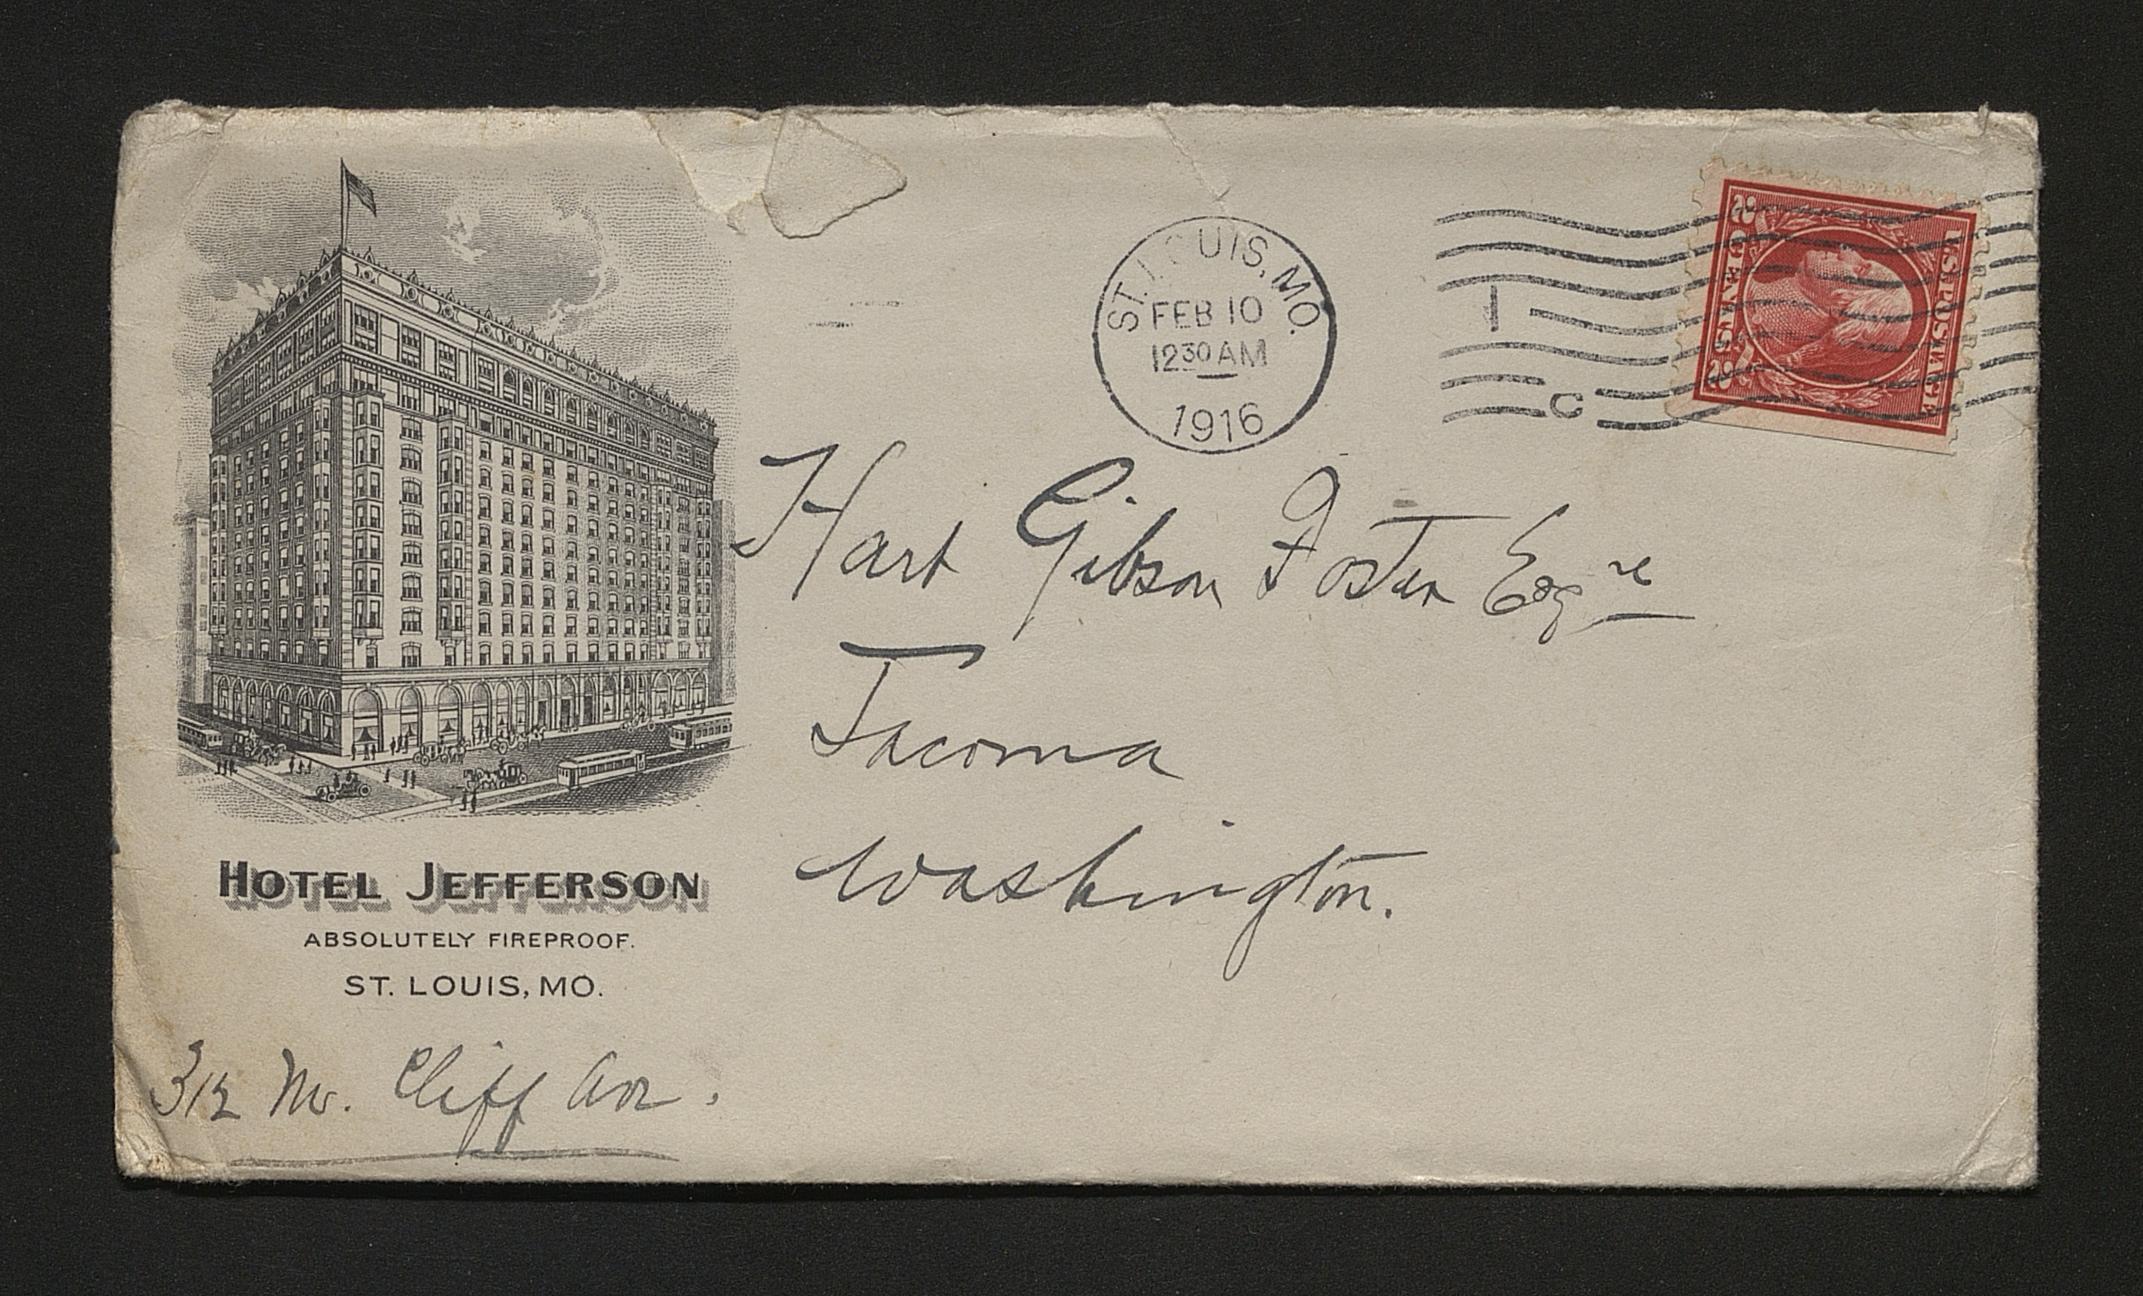 ST. LOUIS, MO.
FEB 10
12 30 AM
1916
1
C
U.S. POSTAGE
2 CENTS 2
Hart Gibson Foster Esqre
Tacoma
Washington.
HOTEL JEFFERSON
ABSOLUTELY FIREPROOF.
ST. LOUIS, MO.
312 No. Cliff Ave.